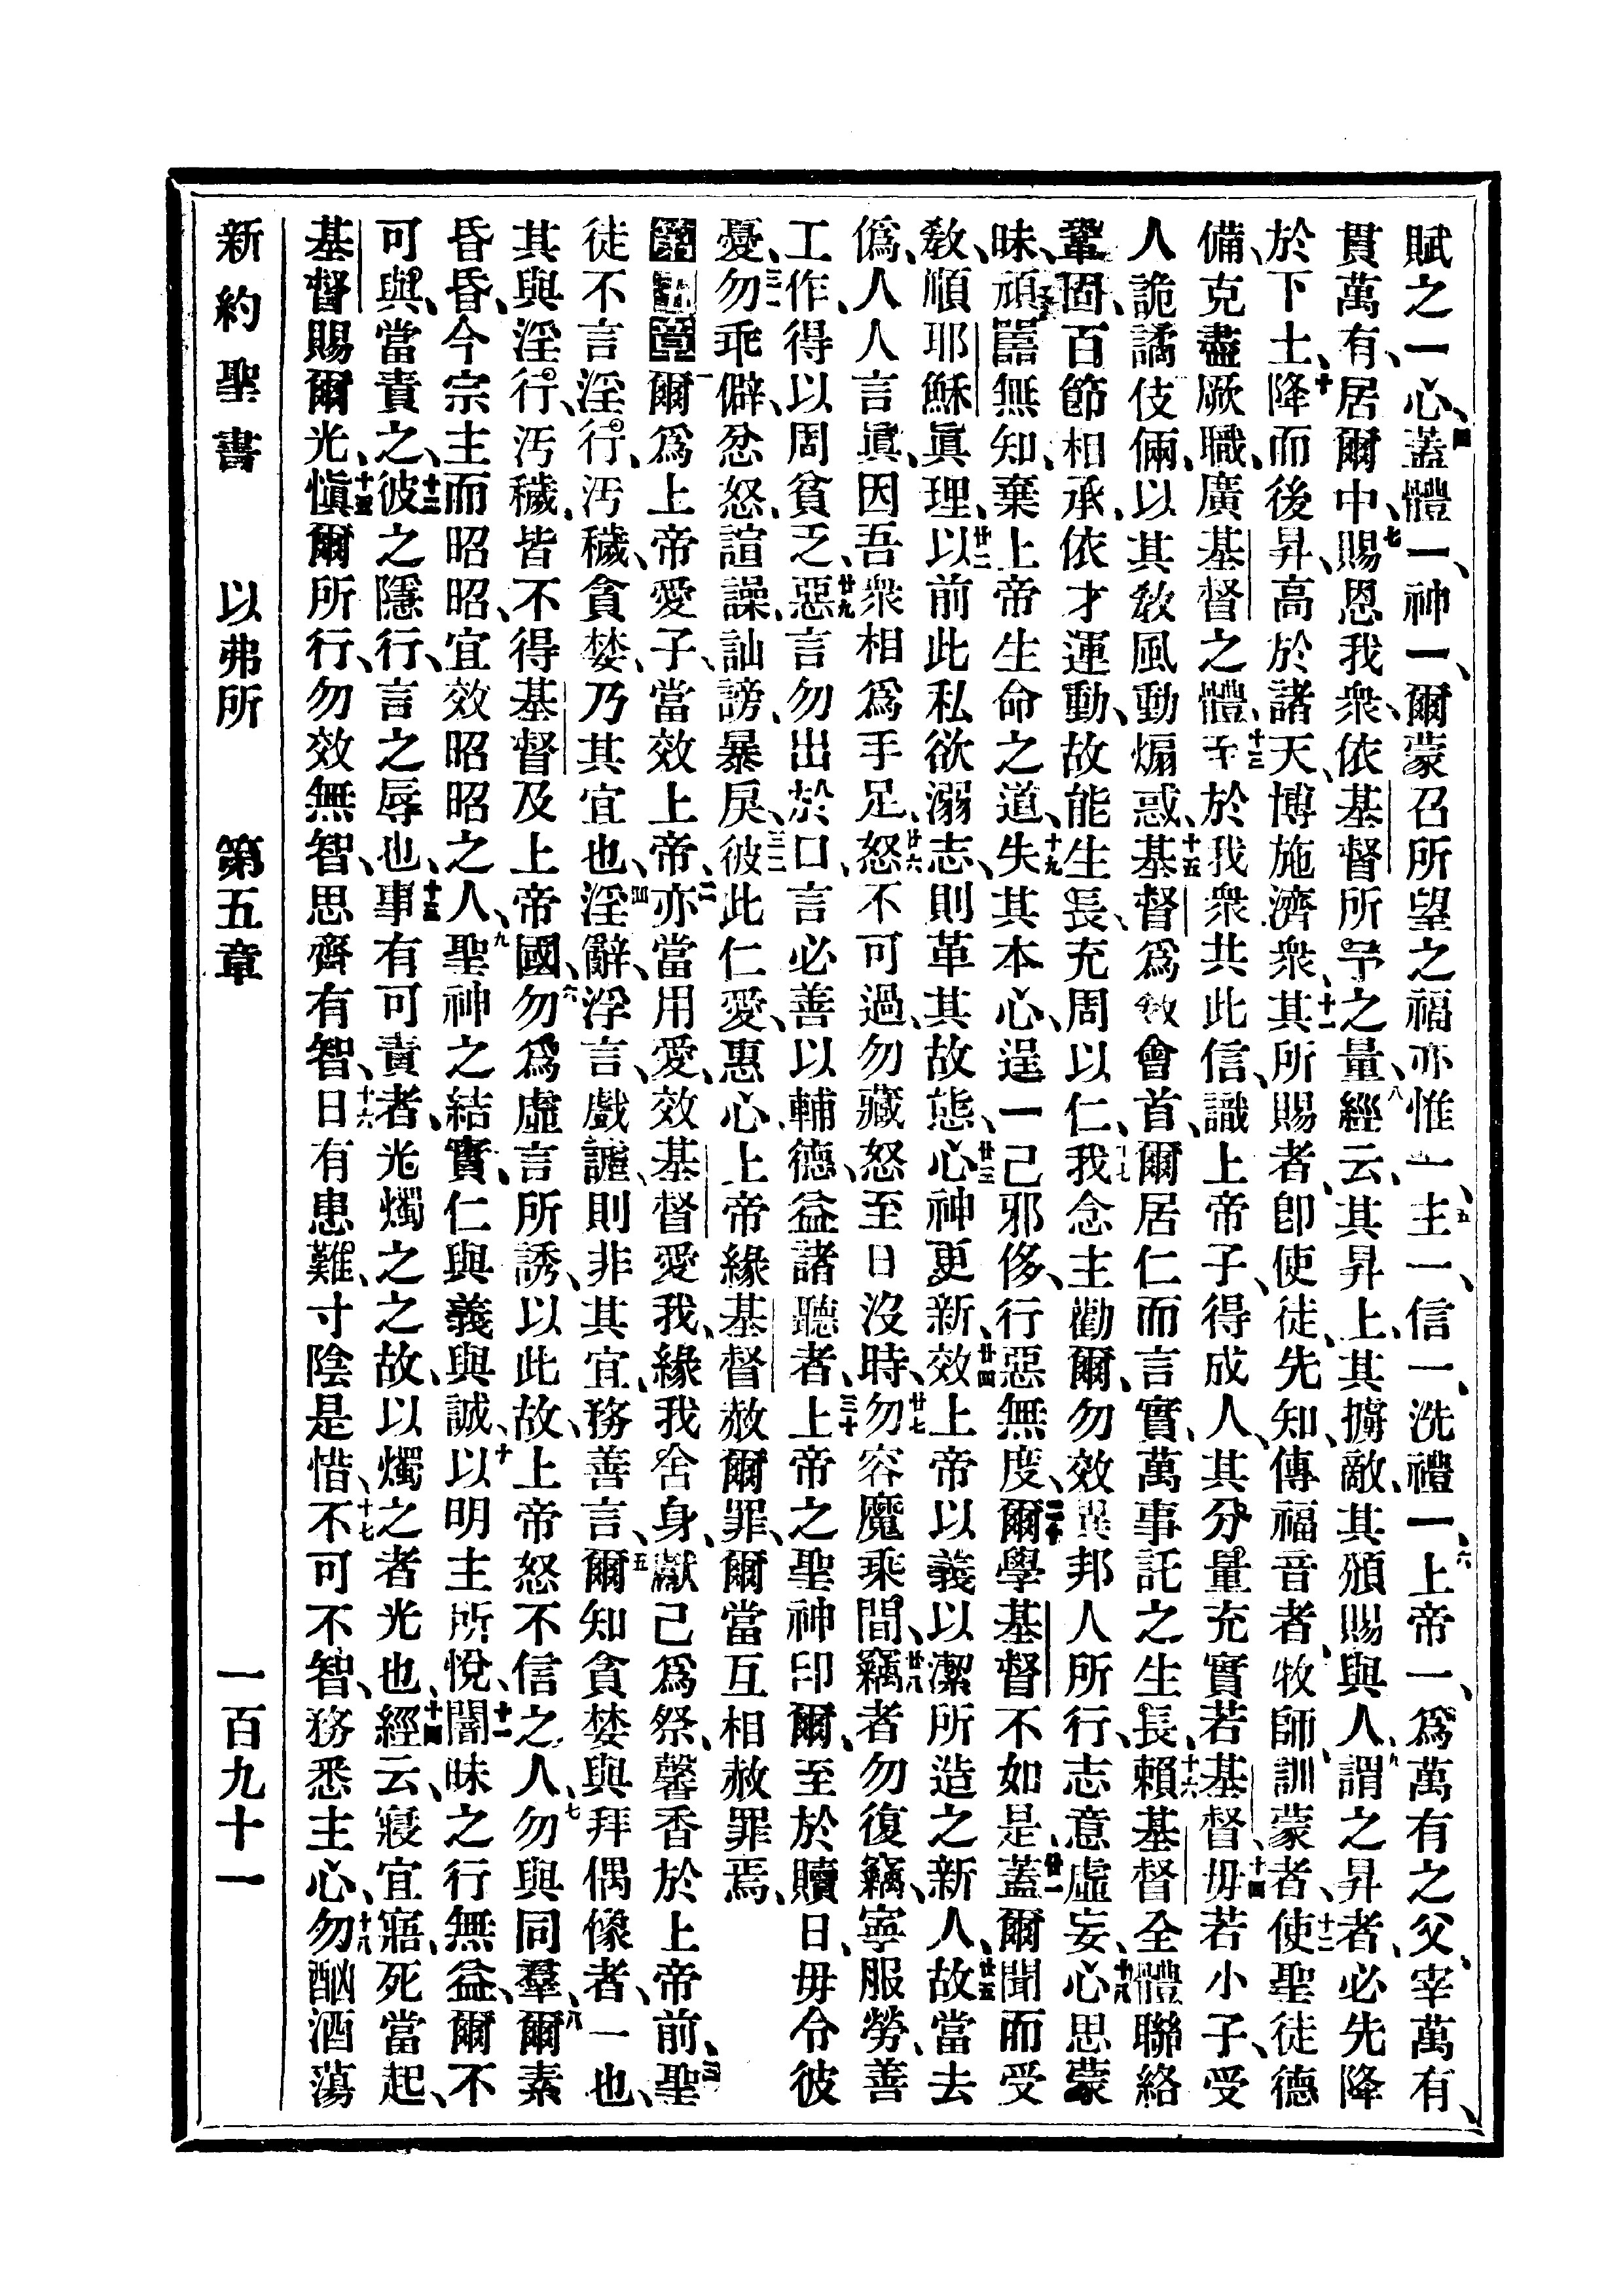 賦之一心、四蓋體一、神一、爾蒙召所望之福亦惟一、五主一、信一、洗禮一、六上帝一、爲萬有之父、宰萬有、
貫萬有、居爾中、七賜恩我衆、依基督所予之量、八經云、其昇上、其擄敵、其頒賜與人、九謂之昇者、必先降
於下土、十降而後昇、高於諸天、博施濟衆、十一其所賜者、卽使徒、先知、傳福音者、牧師、訓蒙者、十二使聖徒德
備、克盡厥職、廣基督之體、十三至於我衆共此信、識上帝子、得成人、其分量充實若基督、十四毋若小子、受
人詭譎伎倆、以其敎風動煽惑、十五基督爲敎會首、爾居仁而言實、萬事託之生長、十六賴基督全體聯絡
鞏固、百節相承、依才運動、故能生長、充周以仁、十七我念主勸爾、勿效異邦人所行、志意虛妄、十八心思蒙
昧、頑嚚無知、棄上帝生命之道、十九失其本心、逞一己邪侈、行惡無度、二十爾學基督不如是、廿一蓋爾聞而受
敎、順耶穌眞理、廿二以前此私欲溺志、則革其故態、廿三心神更新、廿四效上帝以義以潔所造之新人、廿五故當去
僞、人人言眞、因吾衆相爲手足、廿六怒不可過、勿藏怒至日沒時、廿七勿容魔乘間、廿八竊者勿復竊、寧服勞、善
工作、得以周貧乏、廿九惡言勿出於口、言必善以輔德、益諸聽者、三十上帝之聖神印爾、至於贖日、毋令彼
憂、三一勿乖僻、忿怒、諠譟、訕謗、暴戾、三二彼此仁愛、惠心、上帝緣基督赦爾罪、爾當互相赦罪焉、
第五章一爾爲上帝愛子、當效上帝、二亦當用愛、效基督愛我、緣我舍身、獻己爲祭、馨香於上帝前、三聖
徒不言淫行、汚穢、貪婪、乃其宜也、四淫辭、浮言、戲謔、則非其宜、務善言、五爾知貪婪與拜偶像者、一也、
其與淫行、汚穢、皆不得基督及上帝國、六勿爲虛言所誘、以此故、上帝怒不信之人、七勿與同羣、八爾素
昏昏、今宗主而昭昭、宜效昭昭之人、九聖神之結實、仁與義與誠、十以明主所悅、十一闇昧之行無益、爾不
可與、當責之、十二彼之隱行、言之辱也、十三事有可責者、光燭之之故、以燭之者光也、十四經云、寢宜寤、死當起、
基督賜爾光、十五愼爾所行、勿效無智、思齊有智、十六日有患難、寸陰是惜、十七不可不智、務悉主心、十八勿酗酒蕩
新約聖書 以弗所 第五章 一百九十一